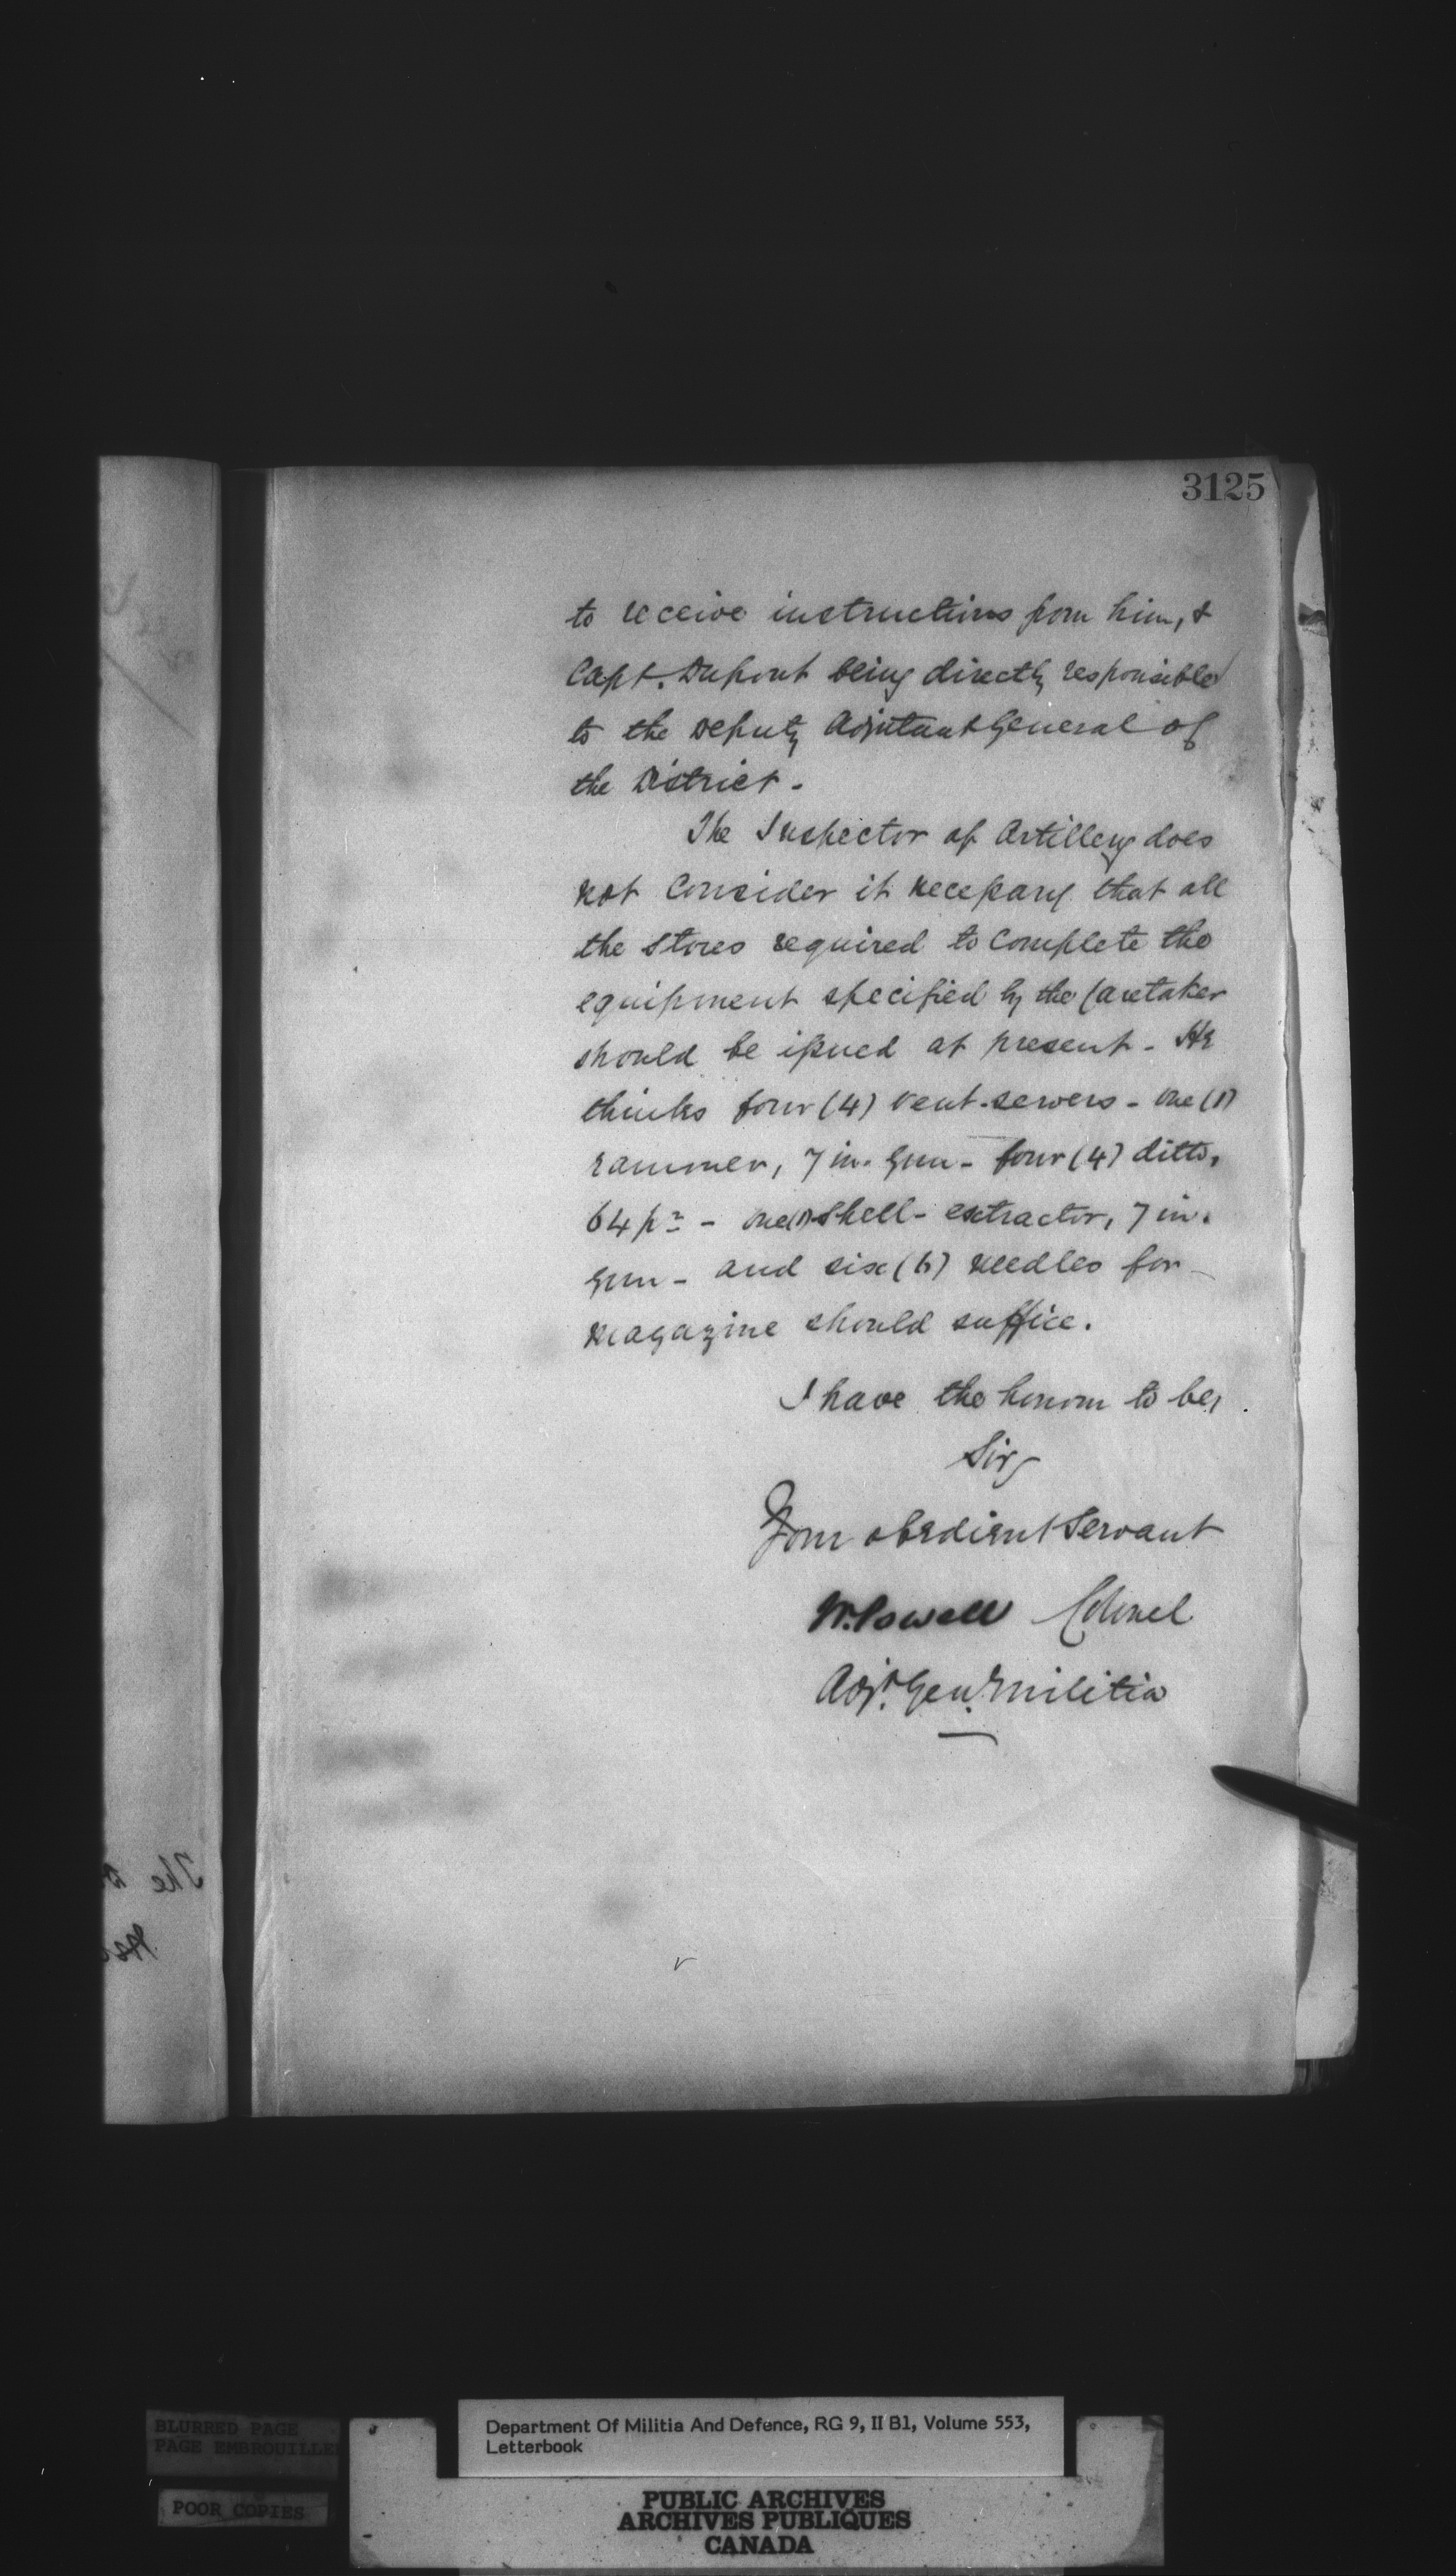 3125
to receive instructions from him, &
Capt. Dupont being directly responsible
to the Deputy Adjutant General of
the District -
The Inspector of Artillery does
not consider it necessary that all
the stores required to complete the
equipment specified by the Caretaker
should be issued at present - He
thinks four (4) vent-servers - one (1)
rammer, 7 in. gun - four (4) ditto,
64 pr - one (1) shell-extractor, 7 in.
gun - and six (6) needles for
magazine should suffice.
I have the honour to be,
Sir,
Your obedient Servant
W. Powell Colonel
Adjt. Gen. Militia
The
BLURRED PAGE
PAGE EMBROUILLEE
POOR COPIES
Department Of Militia And Defence, RG 9, II B1, Volume 553,
Letterbook
PUBLIC ARCHIVES
ARCHIVES PUBLIQUES
CANADA